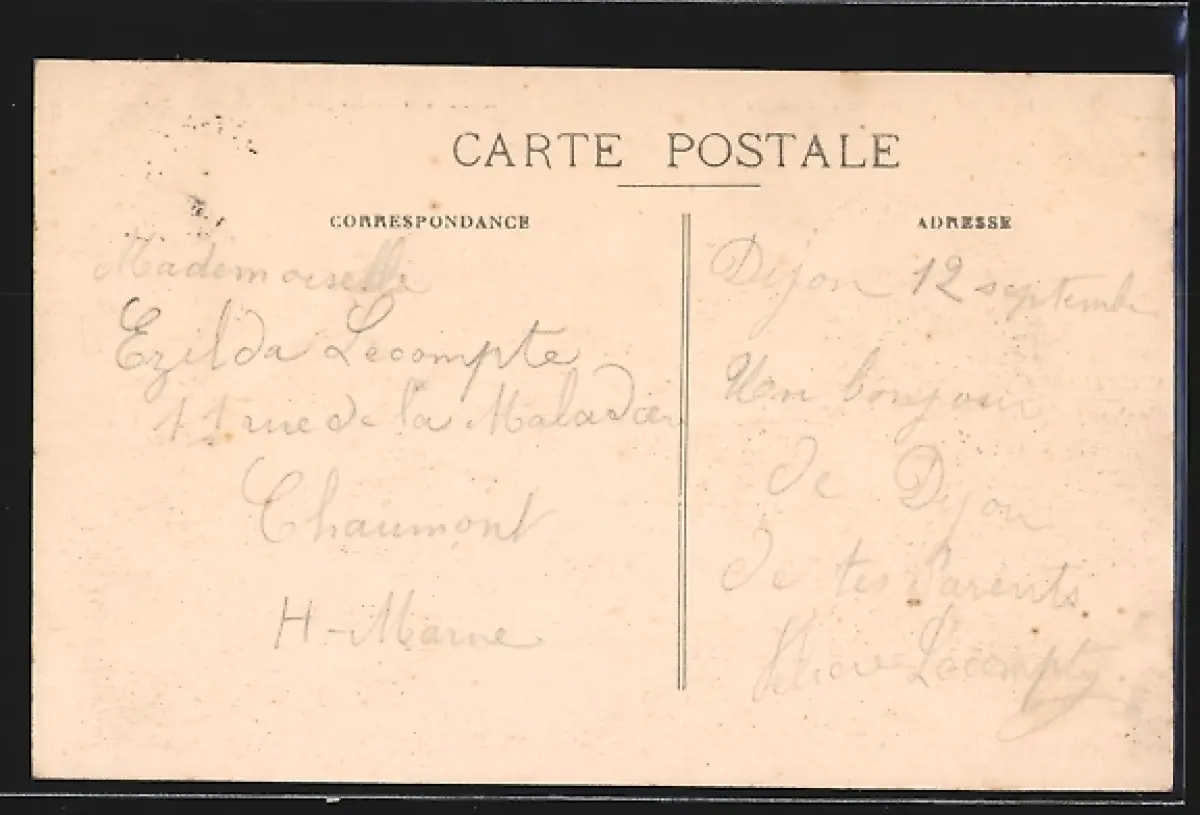 CARTE POSTALE
CORRESPONDANCE
Mademoiselle
Ezilda Lecompte
11 rue de la
Chaumont
H-Marne
ADRESSE
Dijon 12 septembre
Un bonjour
de Dijon
de tes Parents
Lecompte